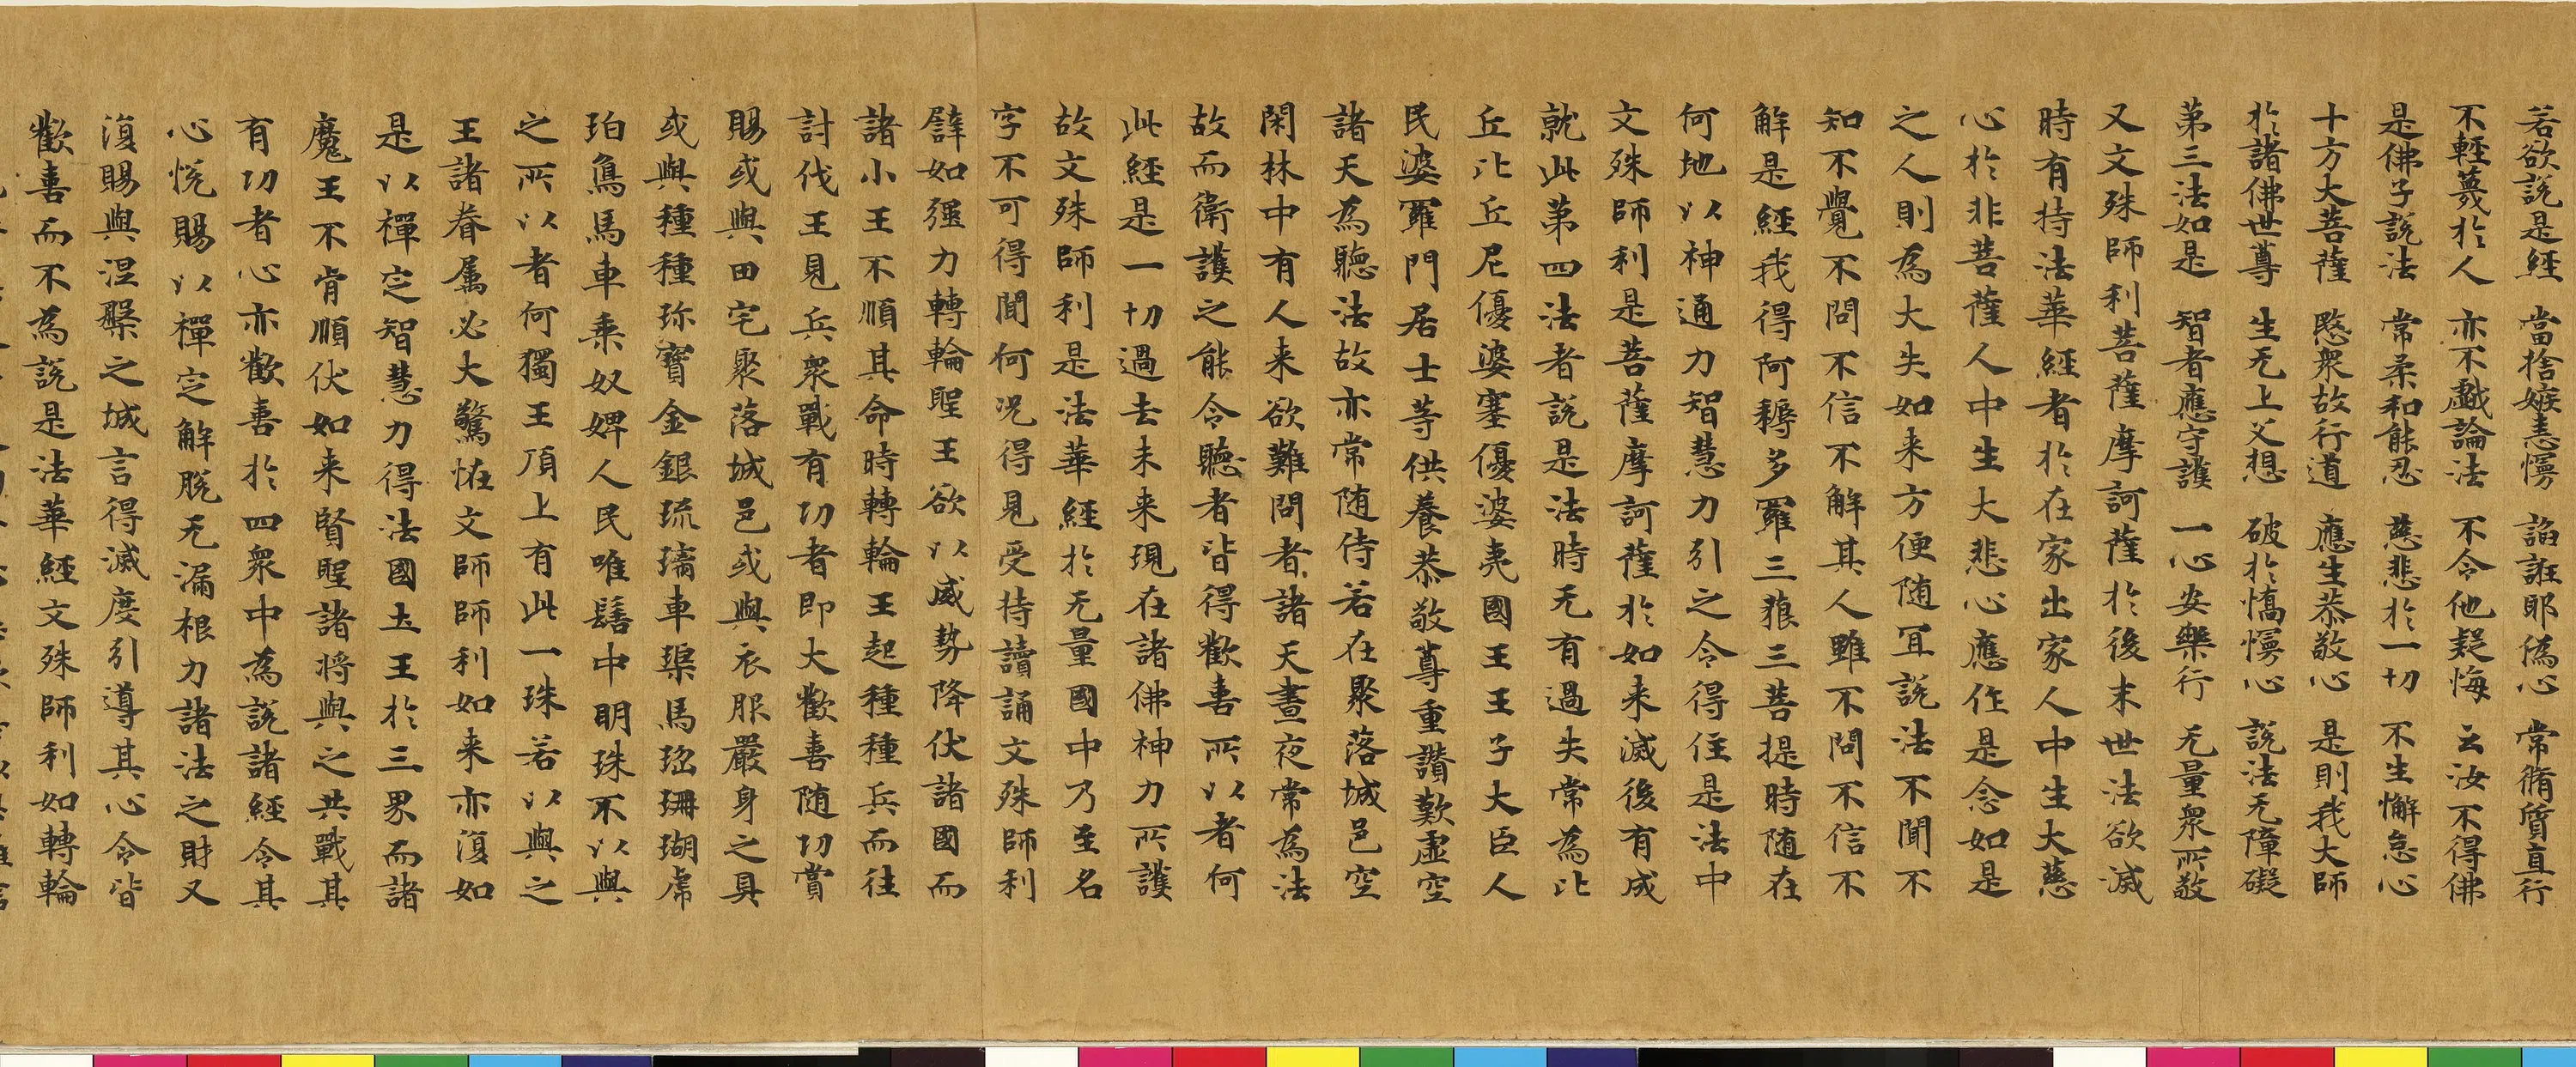 若欲説是經　當捨嫉恚慢　諂誑耶偽心　常脩質直行
不輕蔑於人　亦不戲論法　不令他疑悔　云汝不得佛
是佛子説法　常柔和能忍　慈悲於一切　不生懈怠心
十方大菩薩　愍衆故行道　應生恭敬心　是則我大師
於諸佛世尊　生无上父想　破於憍慢心　説法无障礙
第三法如是　智者應守護　一心安樂行　无量衆所敬
又文殊師利菩薩摩訶薩於後末世法欲滅
時有持法華經者於在家出家人中生大慈
心於非菩薩人中生大悲心應作是念如是
之人則為大失如来方便随冝説法不聞不
知不覺不問不信不解其人雖不問不信不
解是經我得阿耨多羅三藐三菩提時随在
何地以神通力智慧力引之令得住是法中
文殊師利是菩薩摩訶薩於如来滅後有成
就此第四法者説是法時无有過失常為比
丘比丘尼優婆塞優婆夷國王王子大臣人
民婆羅門居士等供養恭敬尊重讚歎虛空
諸天為聽法故亦常随侍若在聚落城邑空
閑林中有人来欲難問者諸天晝夜常為法
故而衛護之能令聽者皆得歡喜所以者何
此經是一切過去未来現在諸佛神力所護
故文殊師利是法華經於无量國中乃至名
字不可得聞何况得見受持讀誦文殊師利
譬如彊力轉輪聖王欲以威勢降伏諸國而
諸小王不順其命時轉輪王起種種兵而往
討伐王見兵衆戰有功者即大歡喜随功賞
賜或與田宅聚落城邑或與衣服嚴身之具
或與種種珍寶金銀琉璃車𤦲馬瑙珊瑚虎
珀鳥馬車乘奴婢人民唯髻中明珠不以與
之所以者何獨王頂上有此一珠若以與之
王諸眷属必大驚恠文師師利如来亦復如
是以禪定智慧力得法國土王於三界而諸
魔王不肯順伏如来賢聖諸将與之共戰其
有功者心亦歡喜於四衆中為説諸經令其
心悅賜以禪定解脱无漏根力諸法之財又
復賜與涅槃之城言得滅度引導其心令皆
歡喜而不為説是法華經文殊師利如轉輪